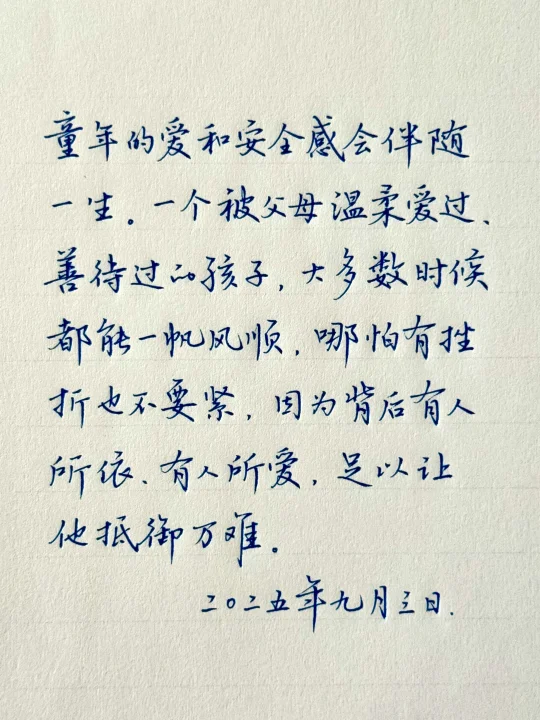 童年的爱和安全感会伴随
一生。一个被父母温柔爱过、
善待过的孩子，大多数时候
都能一帆风顺，哪怕有挫
折也不要紧，因为背后有人
所依、有人所爱，足以让
他抵御万难。
二〇二五年九月三日.